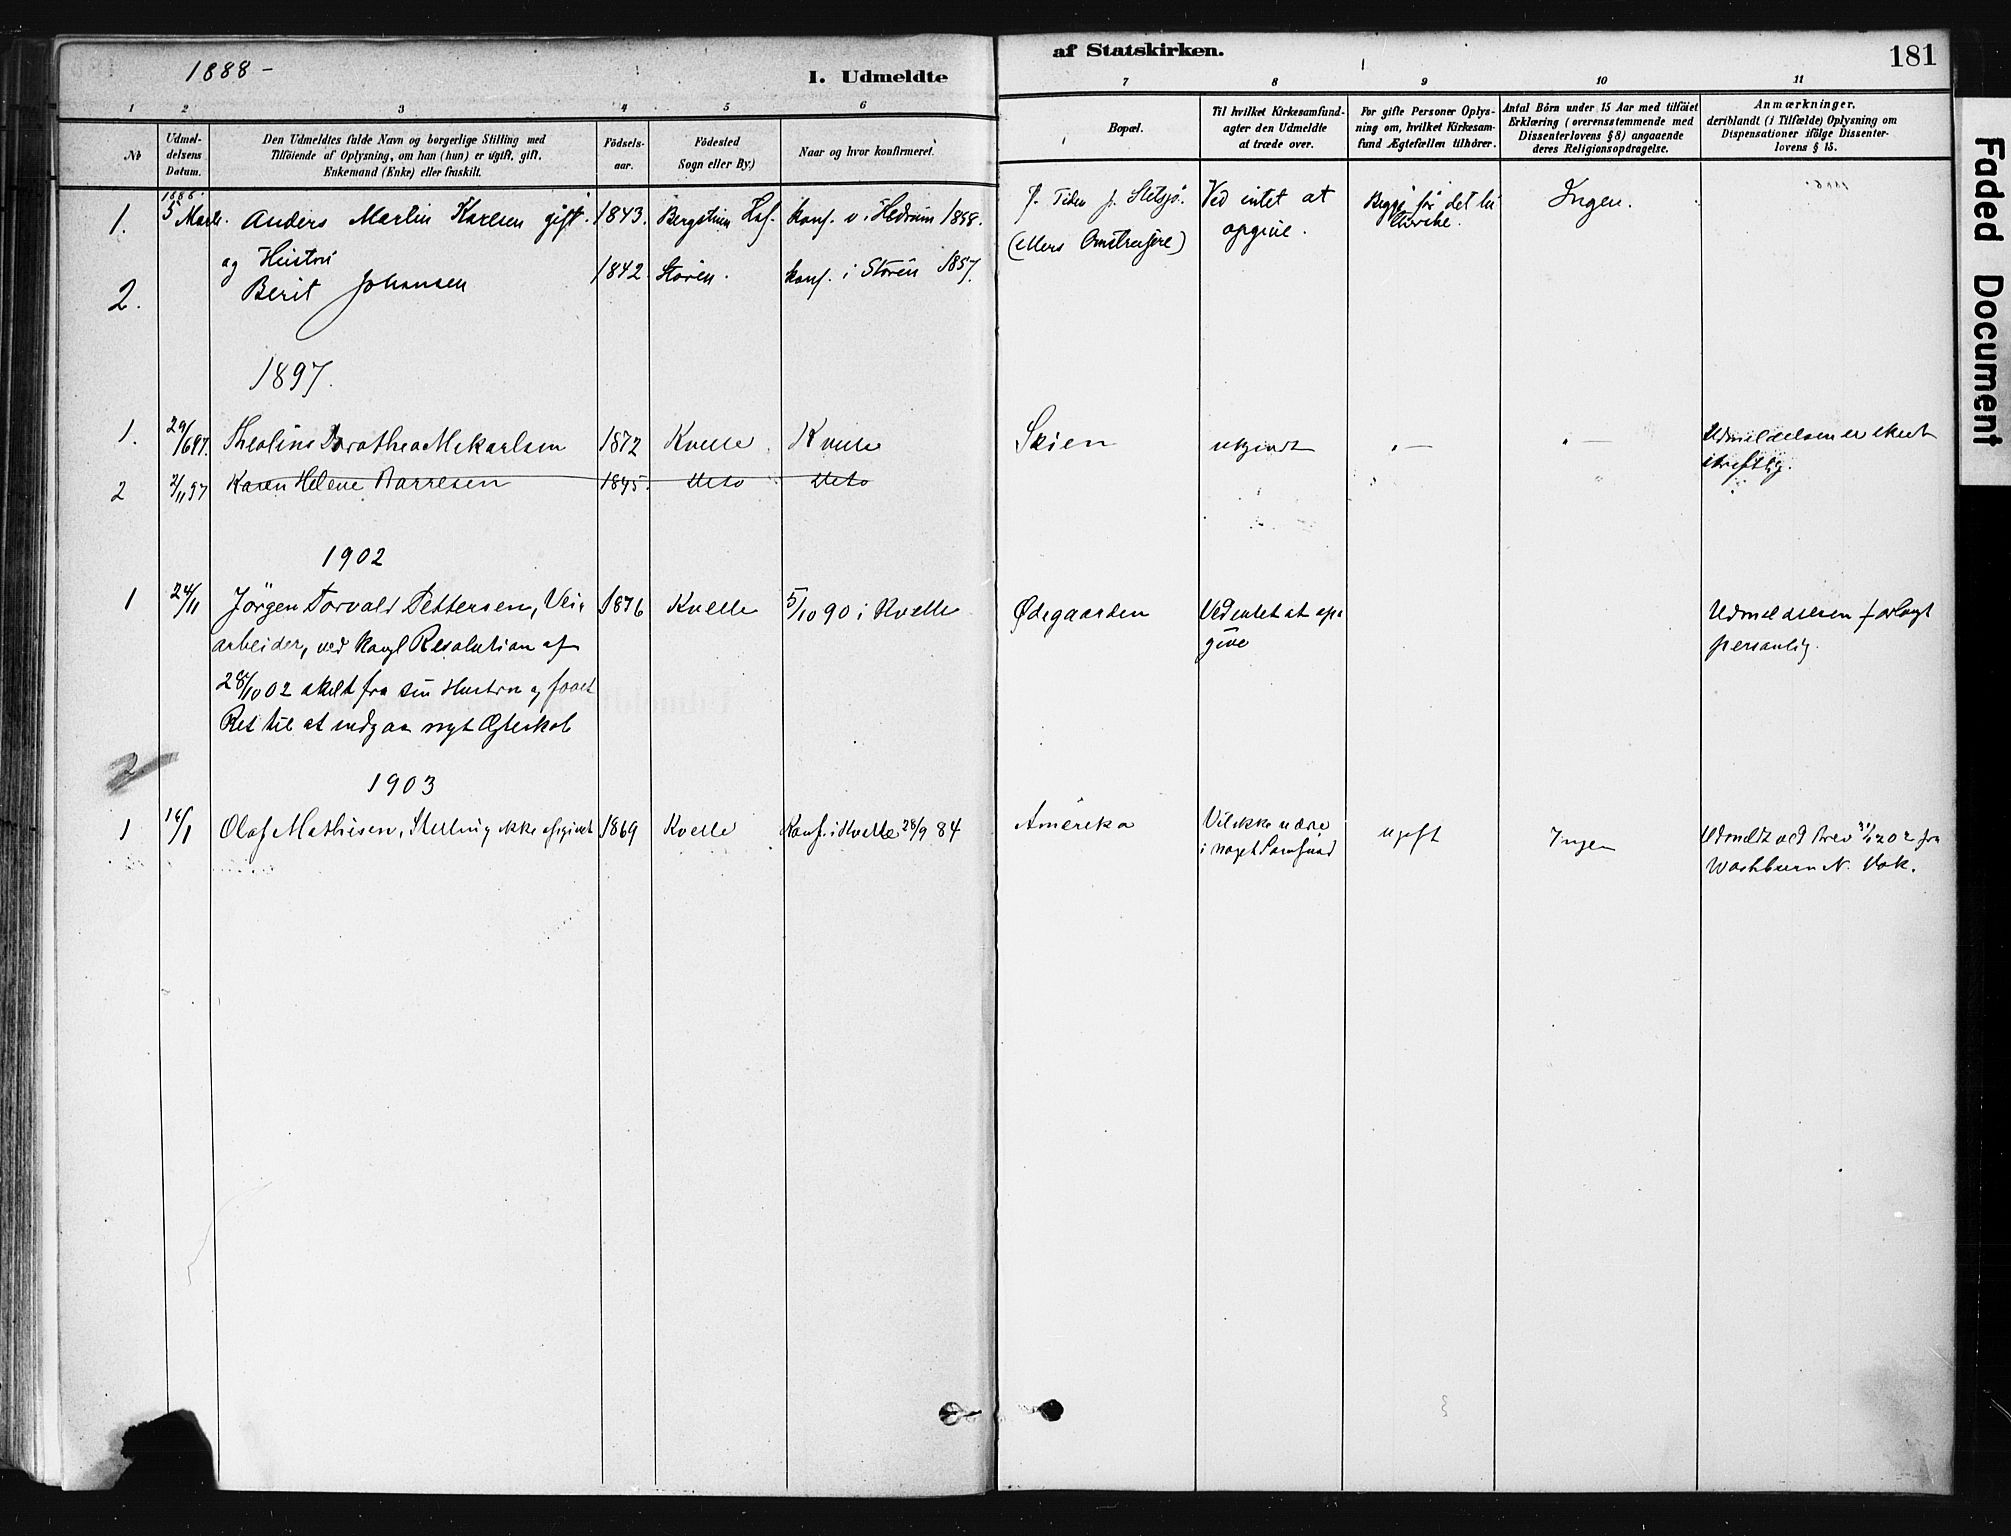 1888 -
I. Udmeldte
af Statskirken.
181
1 2 3 4 5 6 7 8 9 10 11
No
Udmel-
delsens
Datum.
Den Udmeldtes fulde Navn og borgerlige Stilling med
Tilföiende af Oplysning, om han (hun) er ugift, gift,
Enkemand (Enke) eller fraskilt.
Födsels-
aar.
Födested
Sogn eller By.)
Naar og hvor konfirmeret.
Bopæl.
Til hvilket Kirkesamfund-
agter den Udmeldte
at træde over.
For gifte Personer Oplys-
ning om, hvilket Kirkesam-
fund Ægtefællen tilhörer.
Antal Börn under 15 Aar med tilföiet
Erklæring (overensstemmende med
Dissenterlovens § 8) angaaende
deres Religionsopdragelse.
Anmærkninger,
deriblandt (i Tilfælde) Oplysning om
Dispensationer ifölge Dissenter-
lovens § 15.
1. 5 Marts. Anders Martin Karlsen gift. 1843. konf. i Hedrum 1858. Ved intet at opgive. Ingen.
og Hustru
2. Berit Johansen 1842 Støren. konf. i Støren 1857.
1897.
1. 29/6 97. Theoline Dorothea Mekarlsen 1872 Kvelle Kvelle Skien ubekjendt - - Udmeldelsen er skeet
skriftlig.
2 2/11 97 Karen Helene Barresen 1845. Ditto Ditto
1902
1 24/11 Jörgen Torvald Pettersen, Vei- 1876 Kvelle 5/10 90 i Kvelle Ødegaarden Ved intet at op- Udmeldelsen forlagt
arbeider, ved kongl Resolution af give personlig.
28/10 02 skilt fra sin Hustru og faaet
Ret til at indgaa nyt Ægteskab
2
1903
1 16/1 Olaf Mathisen, Stilling ikke opgivet 1869 Kvelle Konf. i Kvelle 28/9 84 Amerika Vil ikke være ugift Ingen Udmeldt ved Brev 31/12 02 fra
i noget Samfund Washburn N. Dak.
Faded Document